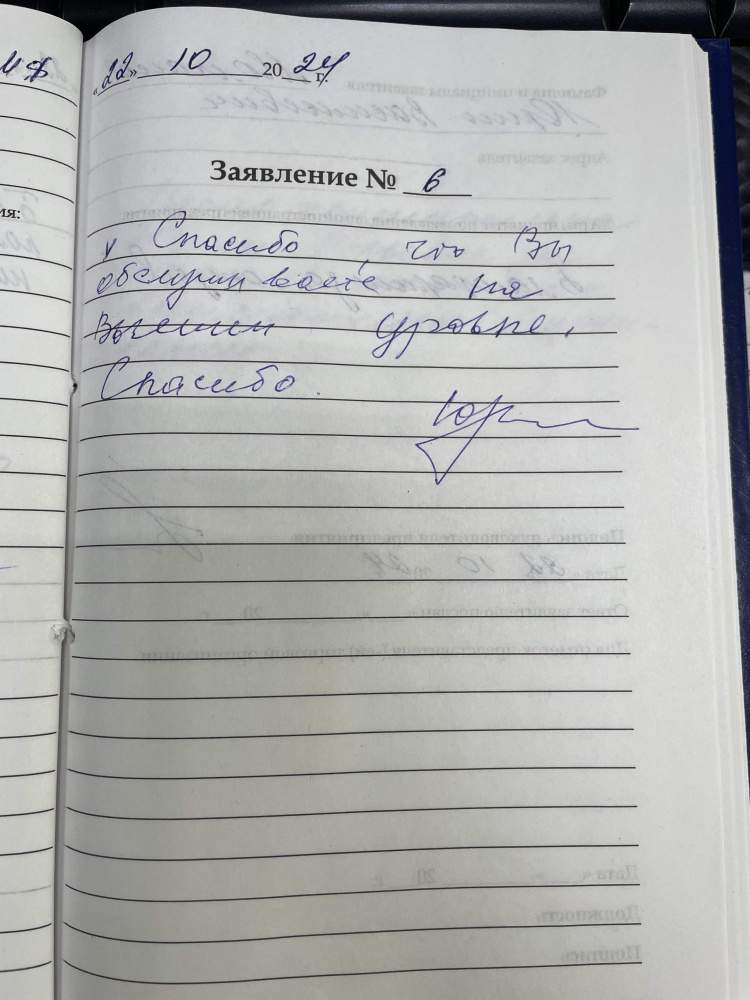 «22» 10 2024 г.
Заявление № 6
Спасибо, что Вы
обслуживаете на
высшем уровне.
Спасибо.